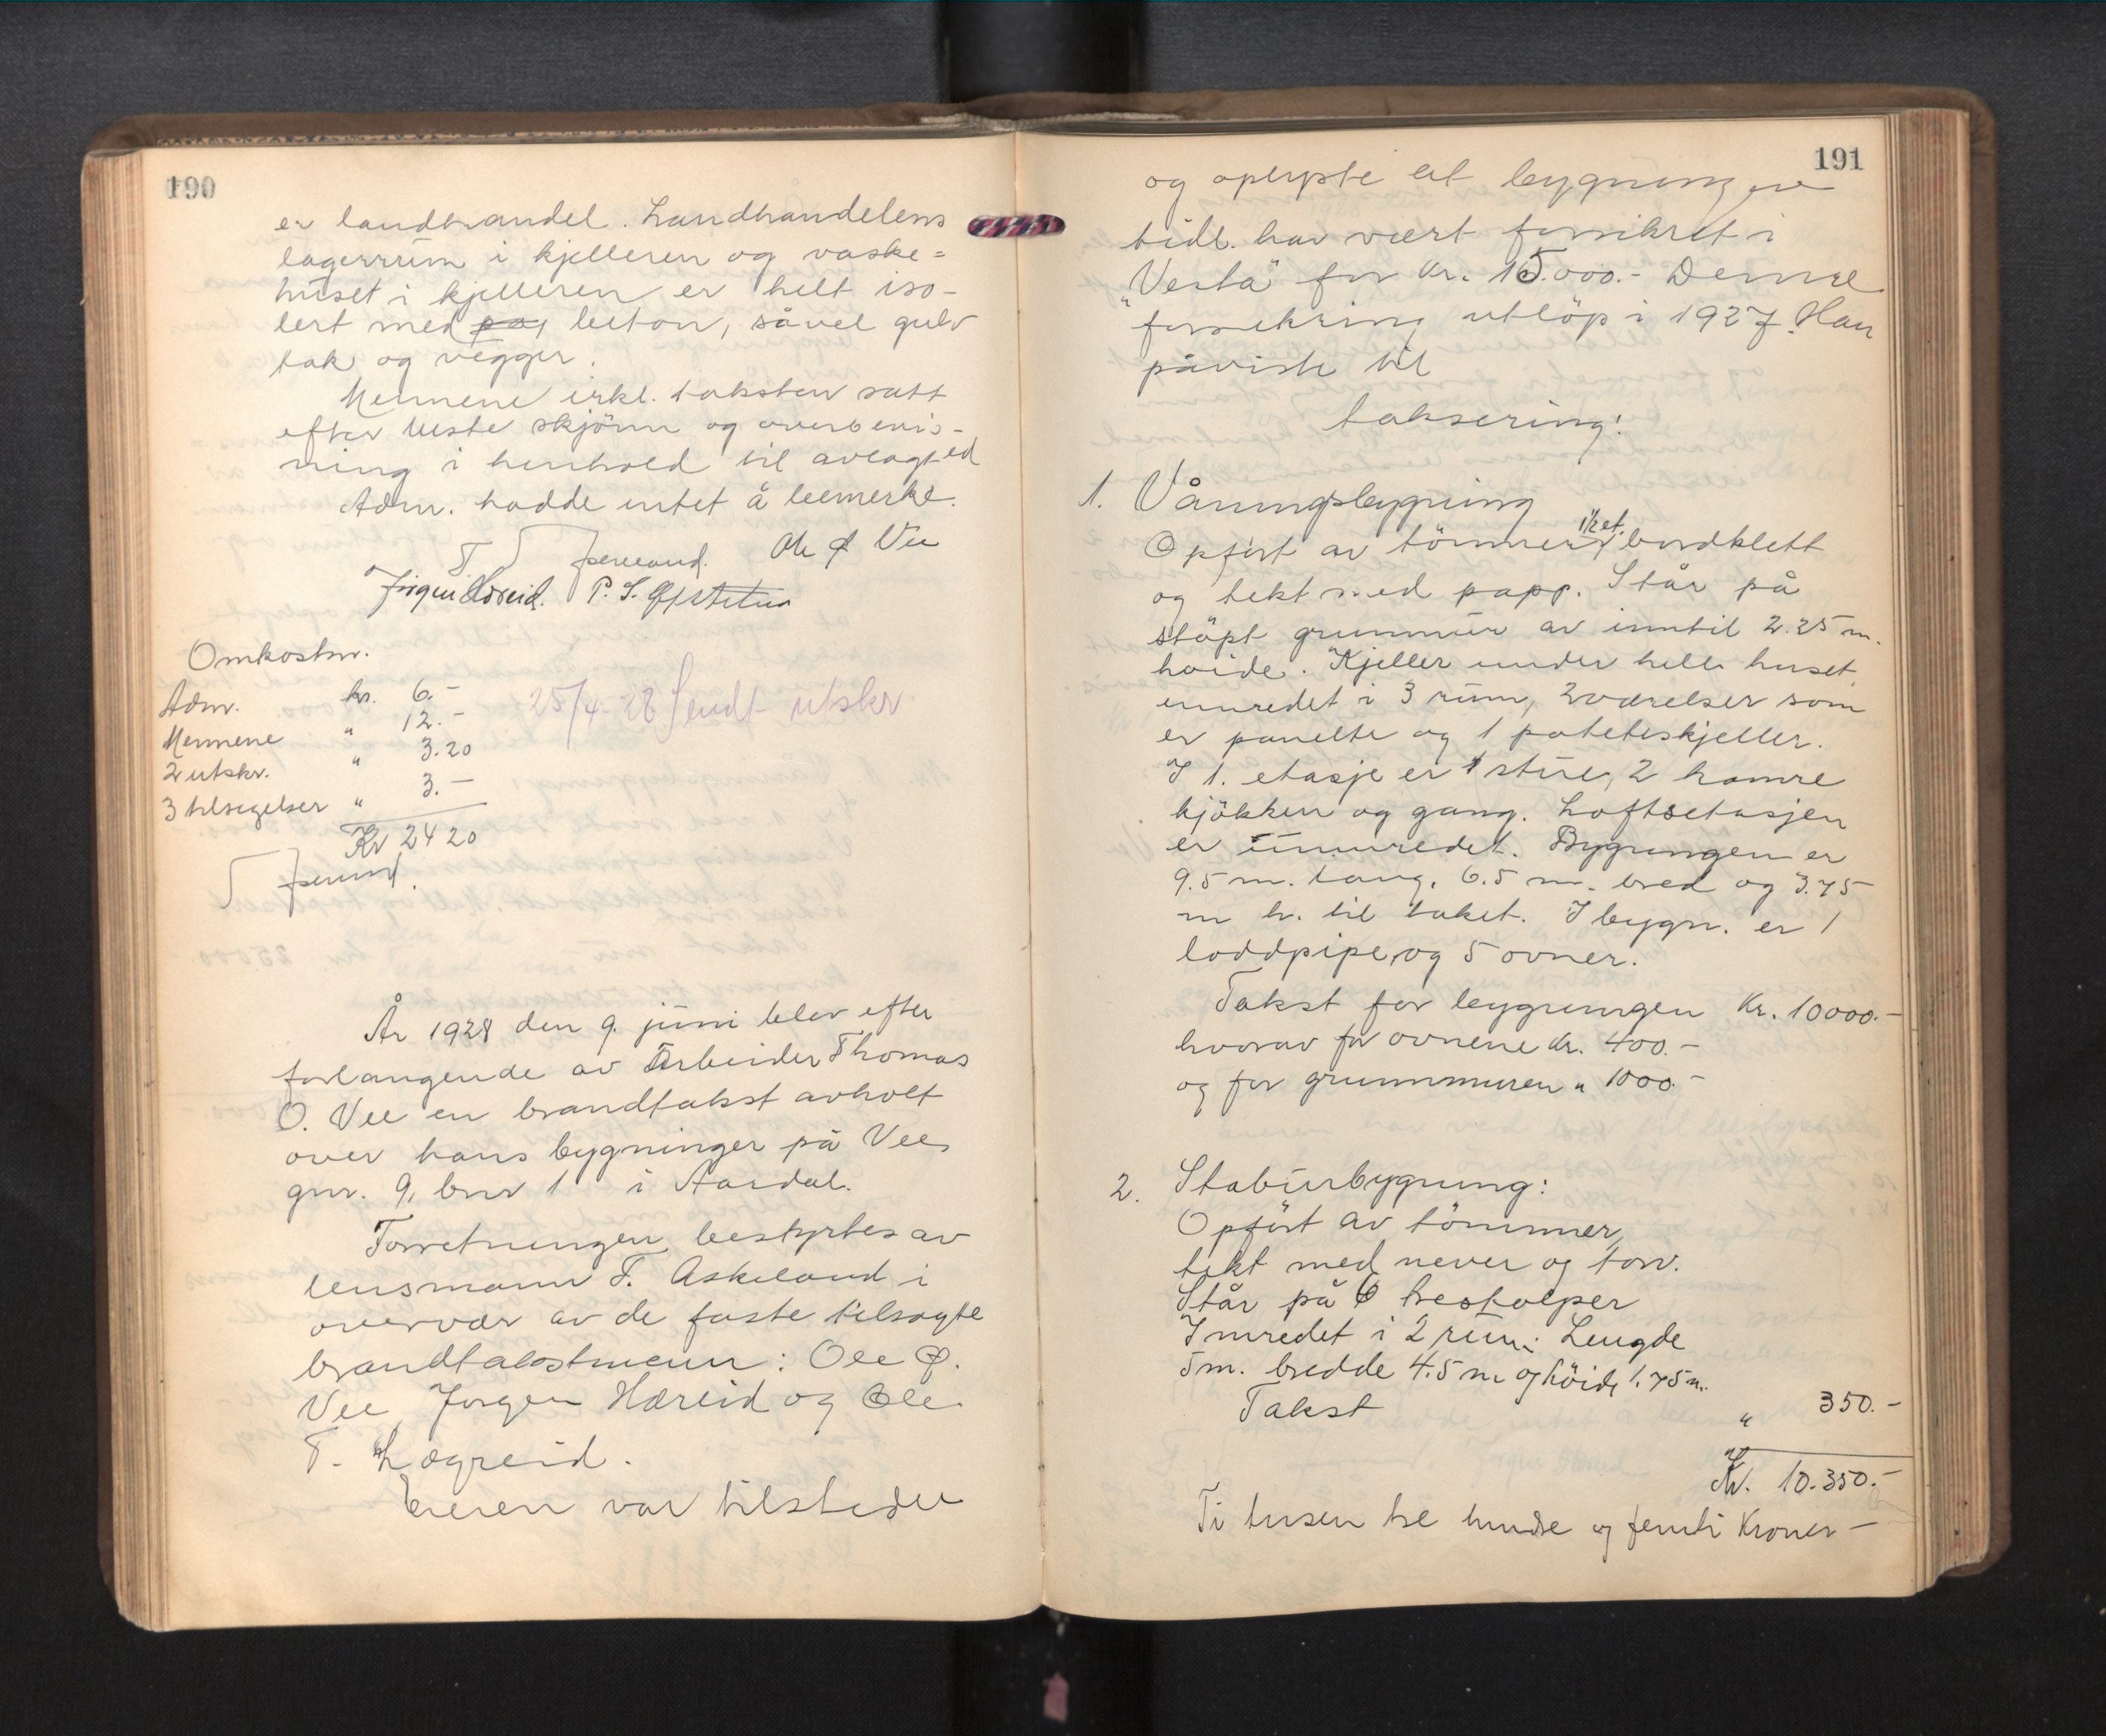 190
er landhandel. Landhandelens
lagerrum i kjelleren og vaske=
huset i kjelleren er helt iso-
lert med beton, såvel gulv
tak og vegger.
Mennene erkl. taksten satt
efter beste skjönn og overbevis-
ning i henhold til avlagt ed
Adm. hadde intet å bemerke.
Ole Ø Vee
Jörgen Hæreid. P. S.
Omkostn.
Adm. kr. 6.-
Mennene " 12.-
2 utskr. " 3.20
3 tilsigelser " 3.-
Kr 24 20
25/4-28 Sendt utskr.
År 1928 den 9. juni blev efter
forlangende av Arbeider Thomas
O. Vee en brandtakst avholt
over hans bygninger på Vee,
gnr. 9, bnr 1 i Aardal.
Forretningen bestyrtes av
lensmann F. Askeland i
overvær av de faste tilsagte
brandtakstmenn: Ole Ø.
Vee, Jörgen Hæreid og Ole
T. Lægreid.
Eieren var tilstede
191
og oplyste at bygningene
tidl. har vært forsikret i
"Vesta" for kr. 15.000.- Denne
forsikring utlöp i 1927. Han
påviste til
taksering:
1. Våningsbygning
Opfört av tömmer, bordklett
og tekt med papp. Står på
stöpt grunnmur av inntil 2.25 m.
höide. Kjeller under hele huset
innredet i 3 rum, 2 værelser som
er panelte og 1 potetkjeller.
I 1. etasje er 1 stue, 2 kamre
kjökken og gang. Loftsetasjen
er uinnredet. Bygningen er
9.5 m. lang, 6.5 m. bred og 3.75
m h. til taket. I bygn. er 1
loddpipe, og 5 ovner.
Takst for bygningen Kr. 10000.-
hvorav for ovnene kr. 400.-
og for grunnmuren " 1000.-
2. Stabursbygning:
Opfört av tömmer,
tekt med never og torv.
Står på 6 trestolper
Innredet i 2 rum. Lengde
5 m. bredde 4.5 m og höide 1.75 m.
Takst " 350.-
Kr. 10.350.-
Ti tusen tre hundre og femti Kroner-